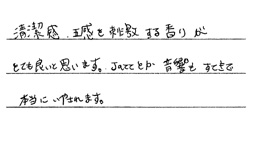 清潔感、五感を刺激する香りが
とても良いと思います。Jazzとか音響もすてきで
本当にいやされます。